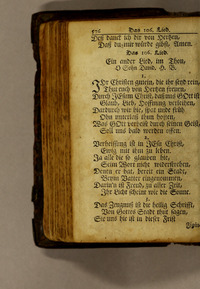 576 Das 106. Lied.
Deß danck ich dir von Hertzen,
Daß du mir würde gibst, Amen.
Das 106. Lied.
Ein ander Lied, im Thon,
O Sohn David, H. B.
1.
Ihr Christen gmein, die ihr seyd rein,
Thut euch von Hertzen freuen,
Durch JEsum Christ, daß uns GOtt ist
Glaub, Lieb, Hoffnung verleihen,
Dardurch wir die, spat und früh
Ihn unterlaß ihm hoffen,
Was GOtt verheißt durch seinen Geist,
Soll uns bald werden offen.
2.
Verheissung ist in JEsu Christ,
Ewig mit ihm zu leben,
Ja alle die so glauben hie,
Seim Wort nicht widerstreben,
Denen er hat, bereit ein Stadt,
Beym Vatter eingenommen,
Darinn ist Freud, zu aller Zeit,
Ihr Liecht scheint wie die Sonne.
3.
Das Zeugnuß ist die heilig Schrifft,
Von Gottes Stadt thut sagen,
Sie uns die ist in dieser Frist